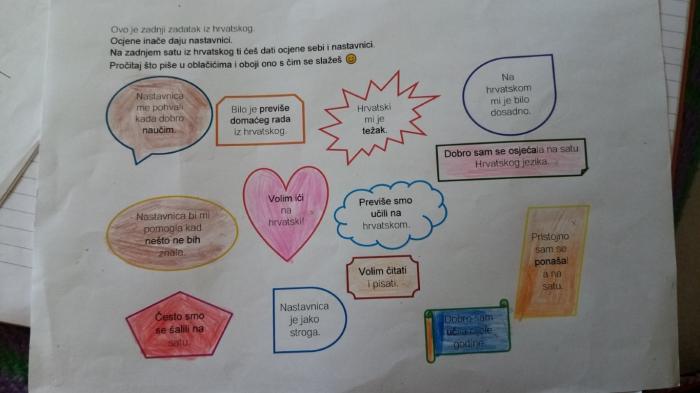 Ovo je zadnji zadatak iz hrvatskog.
Ocjene inače daju nastavnici.
Na zadnjem satu iz hrvatskog ti ćeš dati ocjene sebi i nastavnici.
Pročitaj što piše u oblačićima i oboji ono s čim se slažeš 😊
Nastavnica
me pohvali
kada dobro
naučim.
Bilo je previše
domaćeg rada
iz hrvatskog.
Hrvatski
mi je
težak.
Na
hrvatskom
mi je bilo
dosadno.
Dobro sam se osjećala na satu
Hrvatskog jezika.
Nastavnica bi mi
pomogla kad
nešto ne bih
znala.
Volim ići
na
hrvatski!
Previše smo
učili na
hrvatskom.
Pristojno
sam se
ponašal
a na
satu.
Volim čitati
i pisati.
Često smo
se šalili na
satu.
Nastavnica
je jako
stroga.
Dobro sam
učila cijele
godine.